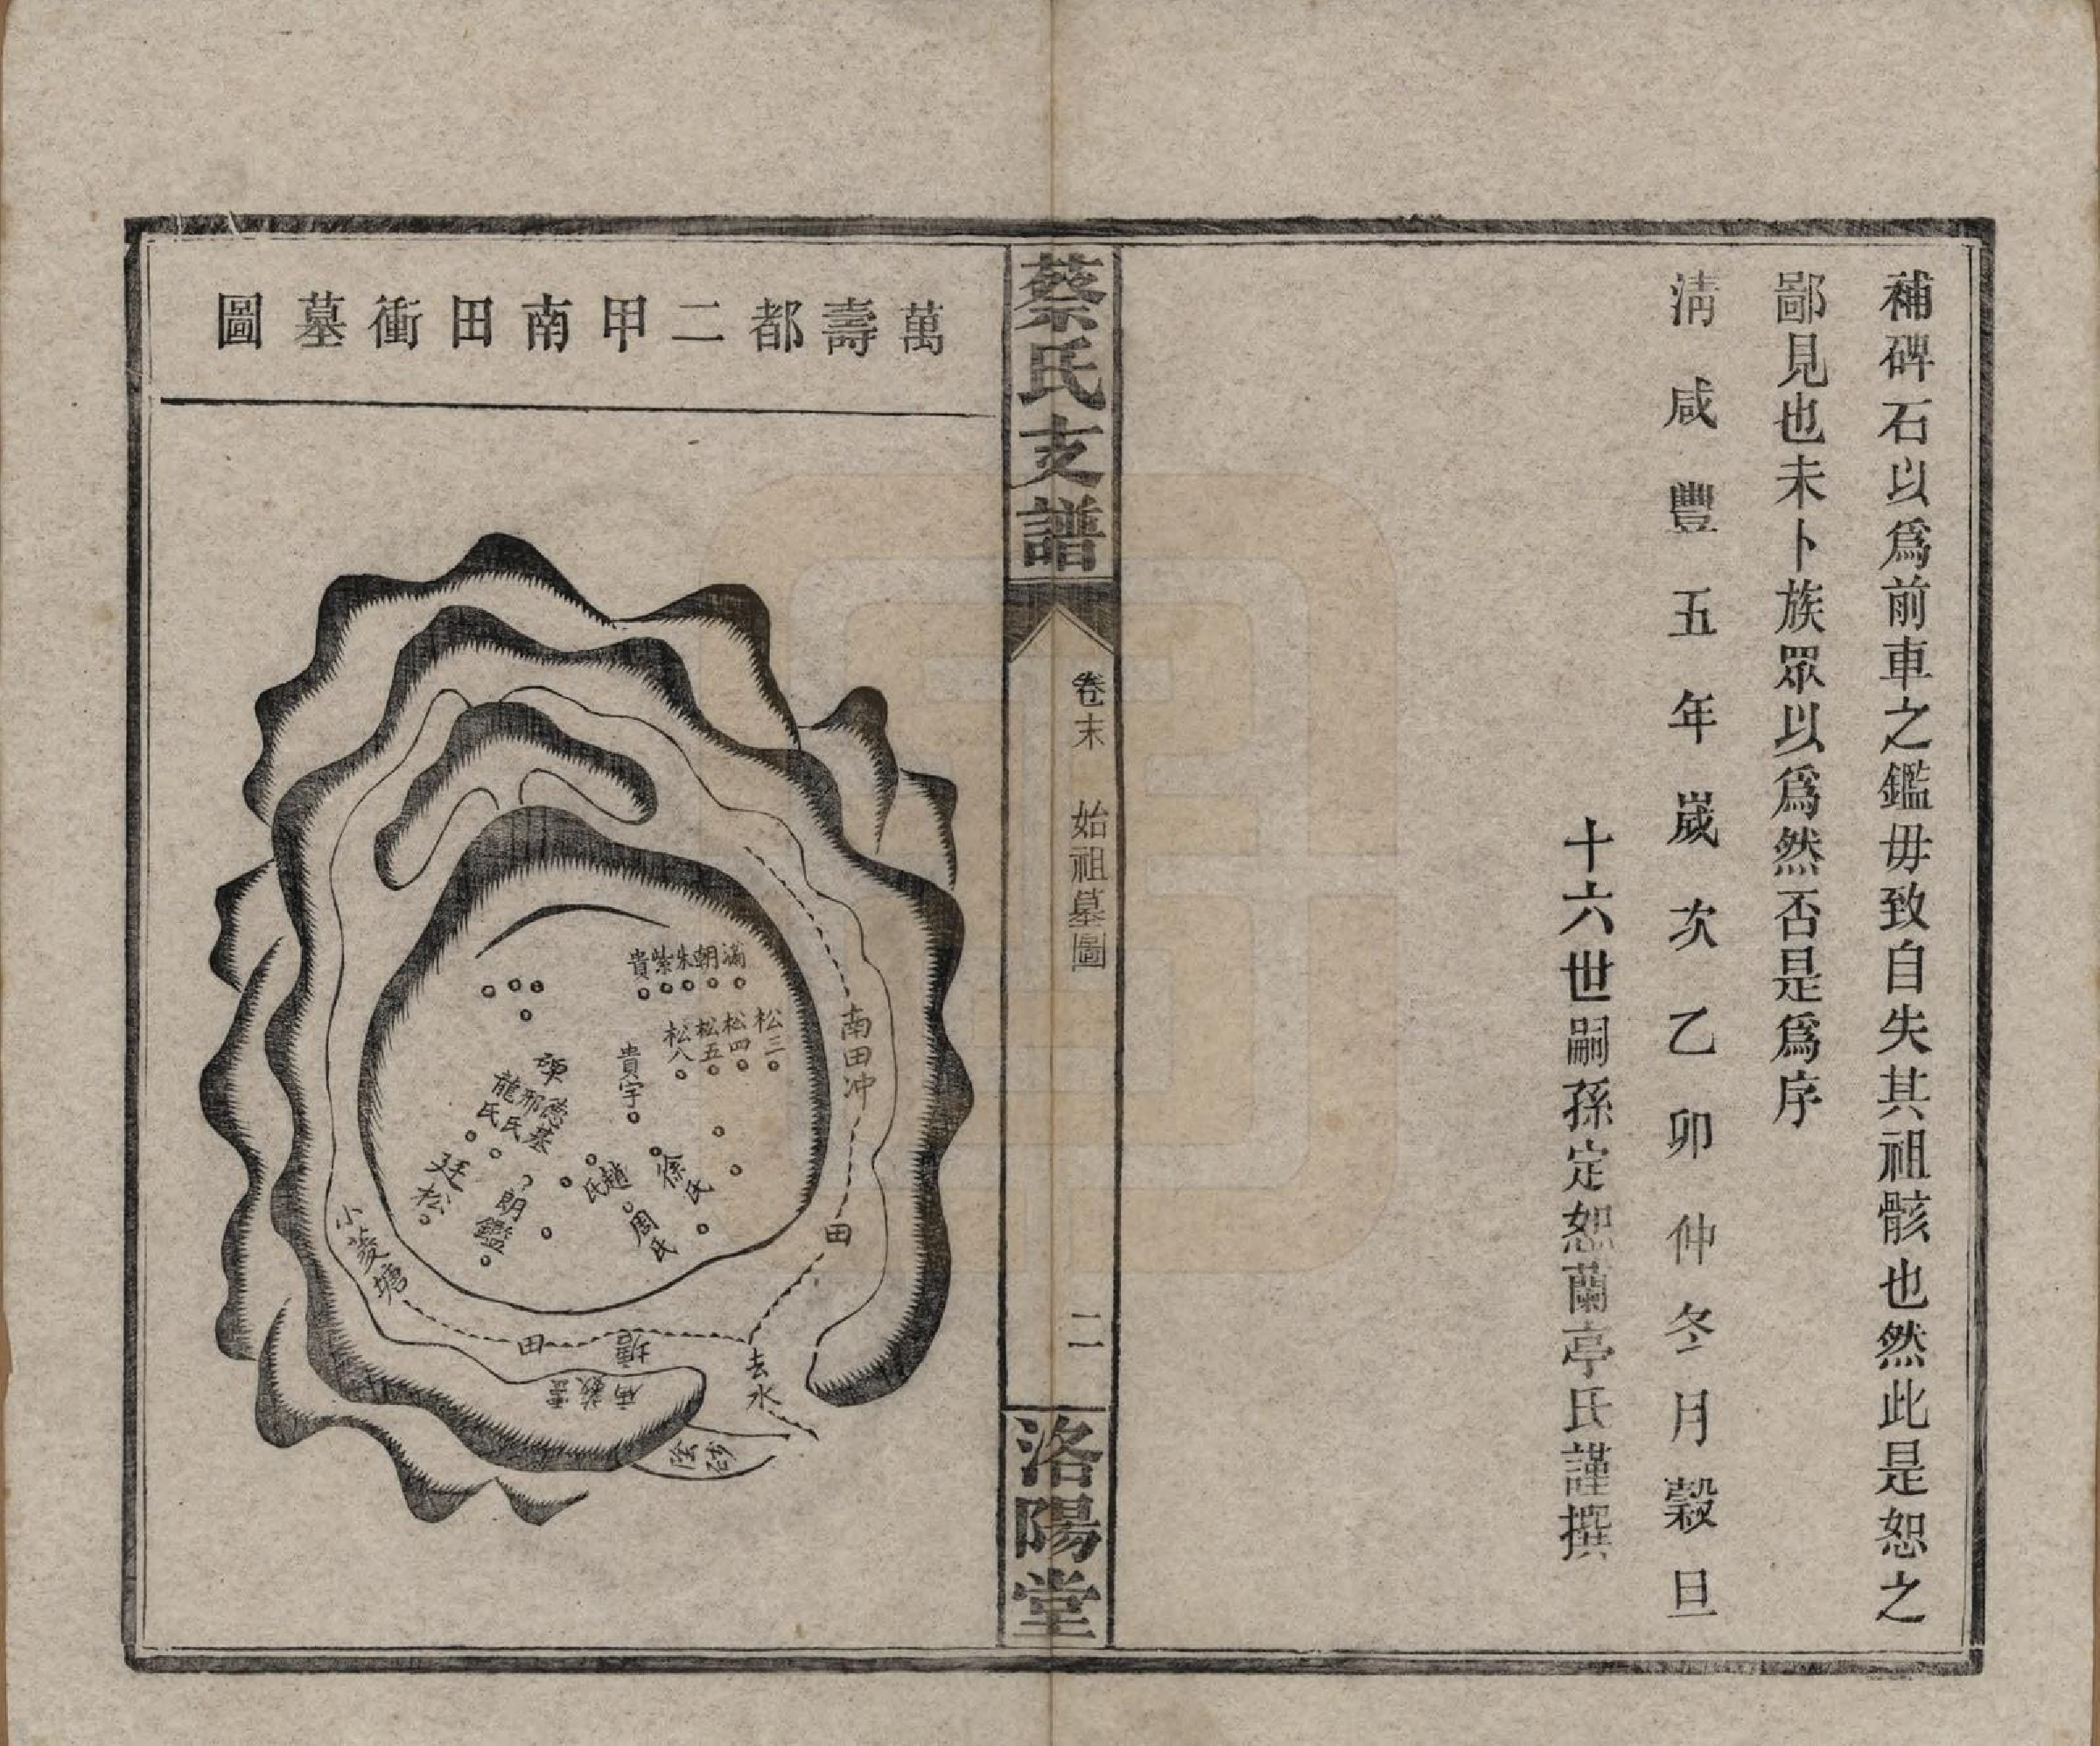 補碑石以爲前車之鑑毋致自失其祖骸也然此是恕之
鄙見也未卜族眾以爲然否是爲序
淸咸豐五年歲次乙卯仲冬月穀旦
十六世嗣孫定恕蘭亭氏謹撰
蔡氏支譜
卷末
始祖墓圖
二
洛陽堂
萬壽都二甲南田衝墓圖
滿
朝
朱
紫
貴
松三
松四
松五
松八
貴宇
碑
德基
邢氏
龍氏
廷松
朗鑑
趙氏
徐氏
周氏
南田冲
田
小菱塘
田
塘
去水